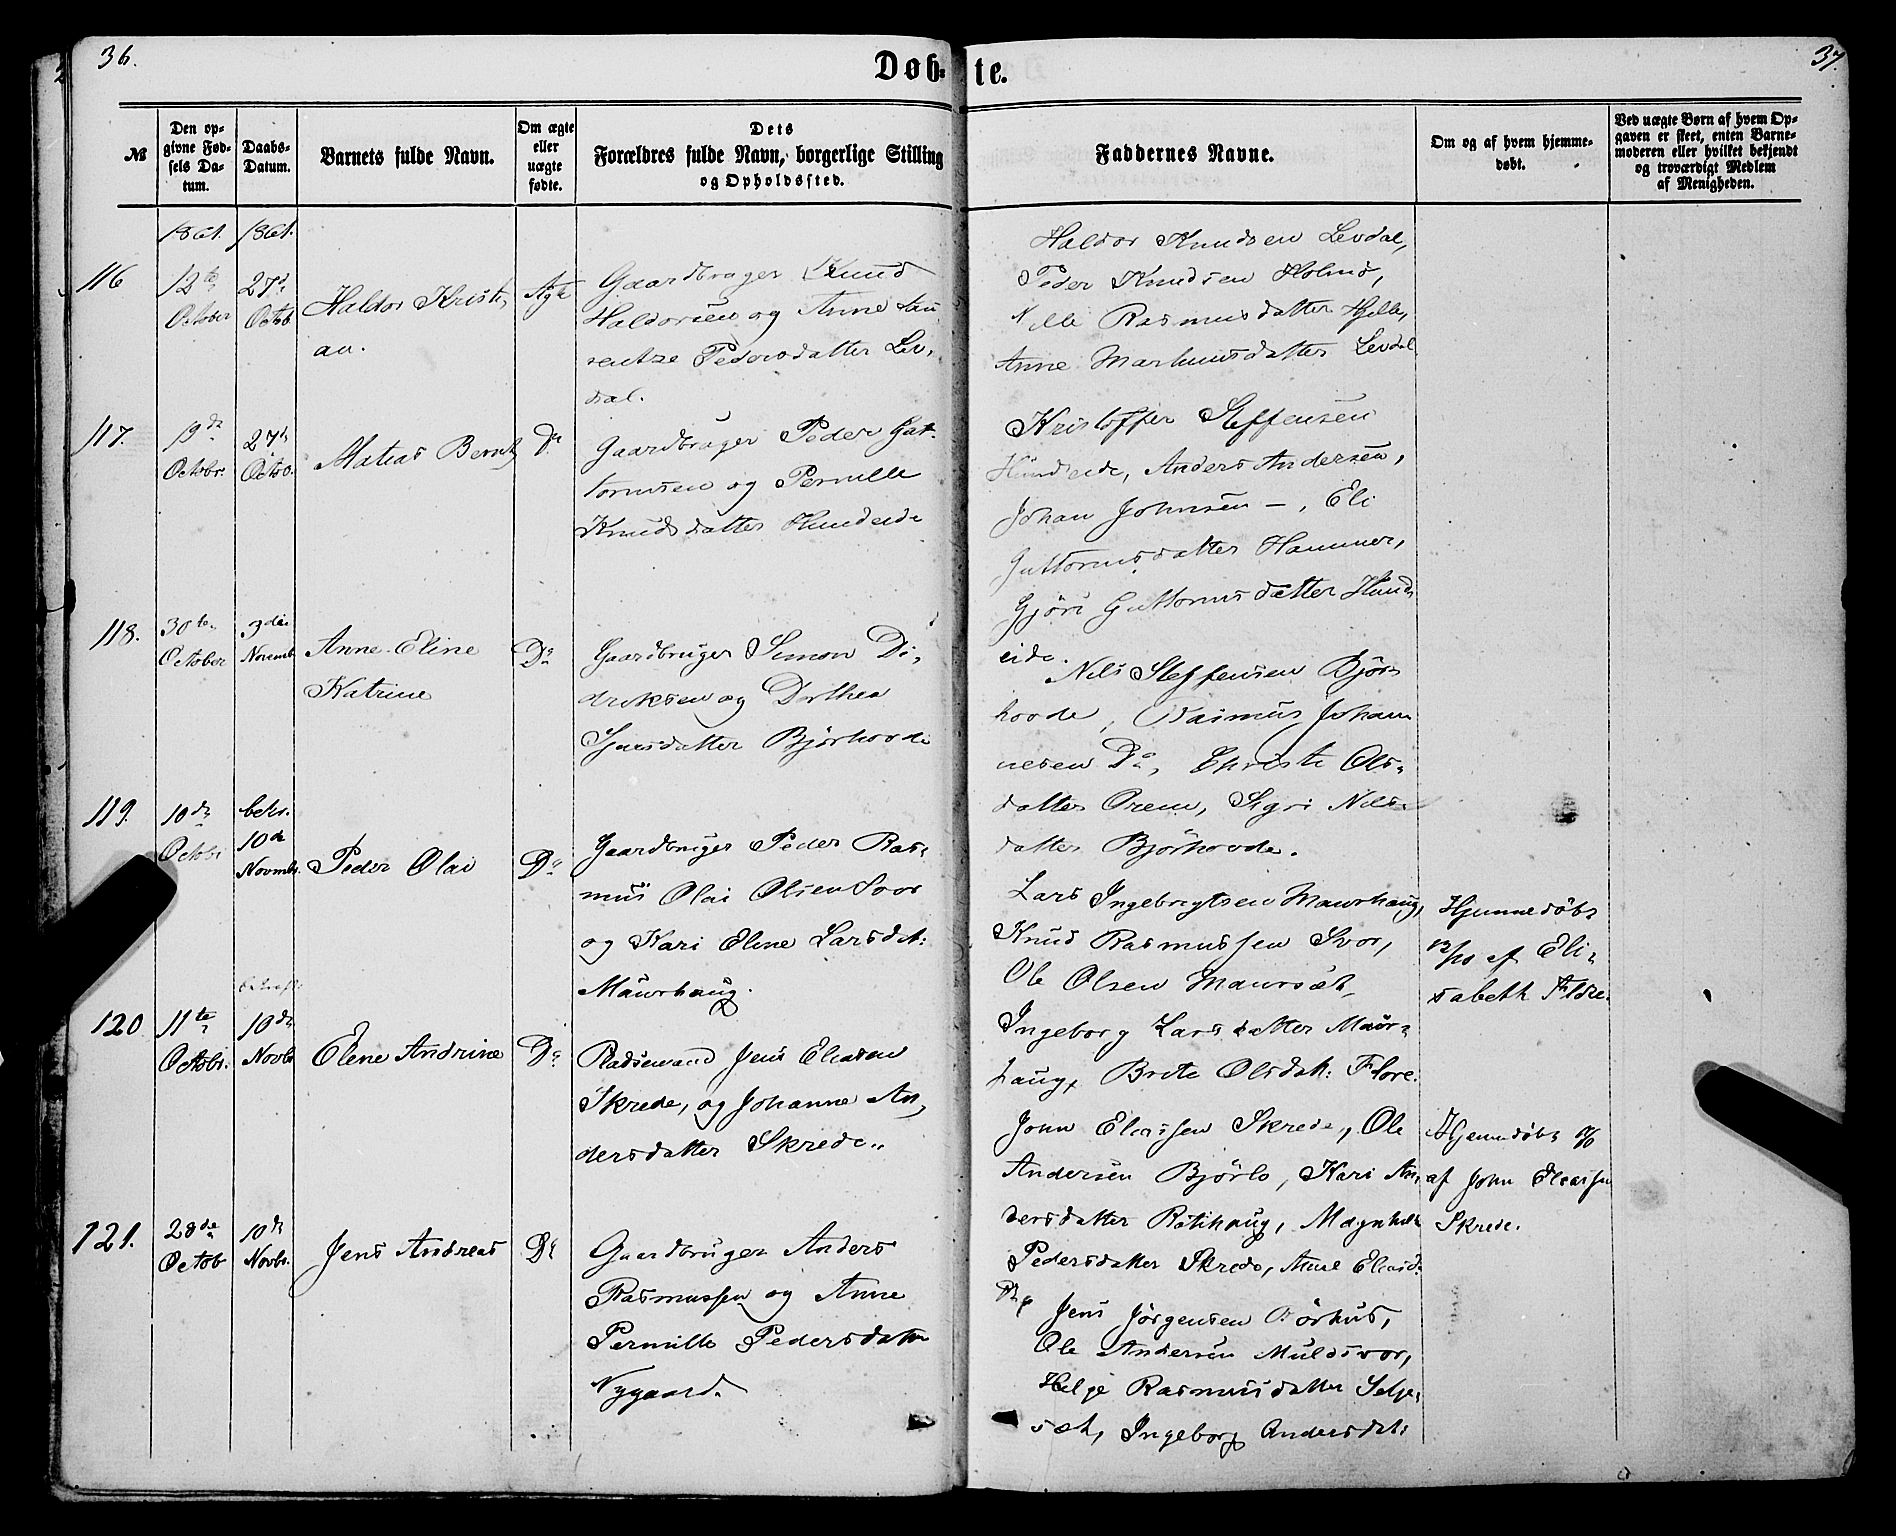 36.
37.
Døb-
te.
№
Den op-
givne Fød-
sels Da-
tum.
Daabs-
Datum.
Barnets fulde Navn.
Om ægte
eller
uægte
fødte.
Dets
Forældres fulde Navn, borgerlige Stilling
og Opholdssted.
Faddernes Navne.
Om og af hvem hjemme-
døbt.
Ved uægte Børn af hvem Op-
gaven er skeet, enten Barne-
moderen eller hvilket bekjendt
og troværdigt Medlem
af Menigheden.
1861.
1861.
116
October
27de
Octob
Haldor Kristi,
an.
Ægte
Gaardbruger Knud
Haldorsen og Anne Lau
rentze Pedersdatter Lev,
dal.
Haldor Knudsen Levdal,
Peder Knudsen Holmø,
Rasmusdatter Hjelle,
Anne Marhinusdatter Levdal
117.
19de
Octobr.
27de
Octob.
Matias Bernt
Do
Gaardbruger Peder Gut-
tormsen og Pernille
Knudsdatter Hundeide
Kristoffer Steffensen
Hundeide, Anders Andersen,
Johan Johnsen —, Eli
Guttormsdatter Hammer,
Gjöri Guttormsdatter Hund
eide.
118.
30te
October
3die
Novemb.
Anne Eline
Katrine
Do
Gaardbruger Simon Di-
driksen og Dorthea
Sjursdatter Björhovde
Nils Steffensen Björ
hovde, Rasmus Johan
nesen Do, Christi Ols-
datter Orem, Sigri Nils
datter Björhovde.
119.
10de
Octobr
bekr.
10de
Novmbr.
Peder Olai
Do
Gaardbruger Peder Ras-
mus Olai Olsen Svor
og Kari Eline Larsdat:
Maurhaug.
Lars Ingebrigtsen Maurhaug,
Knud Rasmussen Svor,
Ole Olsen Maursæt,
Ingeborg Larsdatter Maur-
haug, Brite Olsdat: Flore.
Hjemmedøbt
12/10 af Eli-
sabeth Flore.
120
11te
Octobr.
10de
Novbr
Elene Andrine
Do
Pladsemand Jens Eliasen
Skrede, og Johanne An,
dersdatter Skrede.
John Eliassen Skrede, Ole
Andersen Björlo, Kari An,
dersdatter Rötihaug, Magnhild
Pedersdatter Skrede, Anne Eliasd.
Do
Hjemmedøbt
af John Eliassen
Skrede.
121.
28de
Octob
10de
Novbr.
Jens Andreas
Do
Gaardbruger Anders
Rasmussen og Anne
Pernille Pedersdatter
Nygaard.
Jens Jörgensen Börhus,
Ole Andersen Muldsvor,
Helge Rasmusdatter Selje-
sæt, Ingeborg Andersdat: